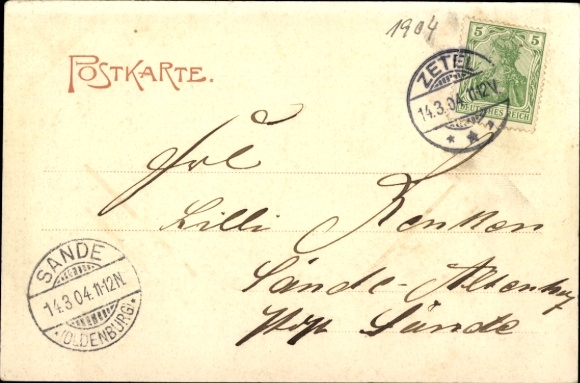 1904
POSTKARTE.
5 5
DEUTSCHES REICH
ZETEL
14.3.04.11-12V.
Frl.
Lilli Renken
Sande-Altenhof
Sande
SANDE
14.3.04.11-12N.
(OLDENBURG)